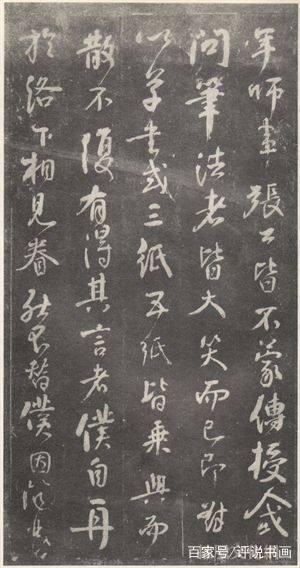 年師事張公皆不蒙傳授人或
問筆法者皆大笑而已即對
以草書或三紙五紙皆乘興而
散不復有得其言者僕自再
於洛下相見眷然不替僕因
百家号/评说书画